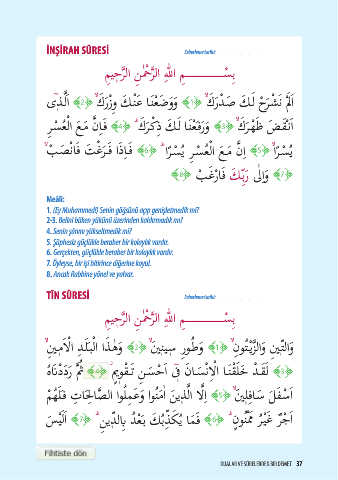 İNŞİRAH SÛRESİ
بِسْمِ اللهِ الرَّحْمٰنِ الرَّحِيمِ
اَلَمْ نَشْرَحْ لَكَ صَدْرَكَۙ ﴿١﴾ وَوَضَعْنَا عَنْكَ وِزْرَكَۙ ﴿٢﴾ اَلَّذٓى
اَنْقَضَ ظَهْرَكَۙ ﴿٣﴾ وَرَفَعْنَا لَكَ ذِكْرَكَۜ ﴿٤﴾ فَاِنَّ مَعَ الْعُسْرِ
يُسْرًاۙ ﴿٥﴾ اِنَّ مَعَ الْعُسْرِ يُسْرًاۜ ﴿٦﴾ فَاِذَا فَرَغْتَ فَانْصَبْۙ
﴿٧﴾ وَاِلٰى رَبِّكَ فَارْغَبْ ﴿٨﴾
Meâli:
1. (Ey Muhammed!) Senin göğsünü açıp genişletmedik mi?
2-3. Belini büken yükünü üzerinden kaldırmadık mı?
4. Senin şânını yükseltmedik mi?
5. Şüphesiz güçlükle beraber bir kolaylık vardır.
6. Gerçekten, güçlükle beraber bir kolaylık vardır.
7. Öyleyse, bir işi bitirince diğerine koyul.
8. Ancak Rabbine yönel ve yalvar.
TÎN SÛRESİ
بِسْمِ اللهِ الرَّحْمٰنِ الرَّحِيمِ
وَالتّٖينِ وَالزَّيْتُونِۙ ﴿١﴾ وَطُورِ سٖينٖينَۙ ﴿٢﴾ وَهٰذَا الْبَلَدِ الْاَمٖينِۙ
﴿٣﴾ لَقَدْ خَلَقْنَا الْاِنْسَانَ فٖٓى اَحْسَنِ تَقْوٖيمٍۘ ﴿٤﴾ ثُمَّ رَدَدْنَاهُ
اَسْفَلَ سَافِلٖينَۙ ﴿٥﴾ اِلَّا الَّذٖينَ اٰمَنُوا وَعَمِلُوا الصَّالِحَاتِ فَلَهُمْ
اَجْرٌ غَيْرُ مَمْنُونٍۜ ﴿٦﴾ فَمَا يُكَذِّبُكَ بَعْدُ بِالدّٖينِۜ ﴿٧﴾ اَلَيْسَ
Fihriste dön
37